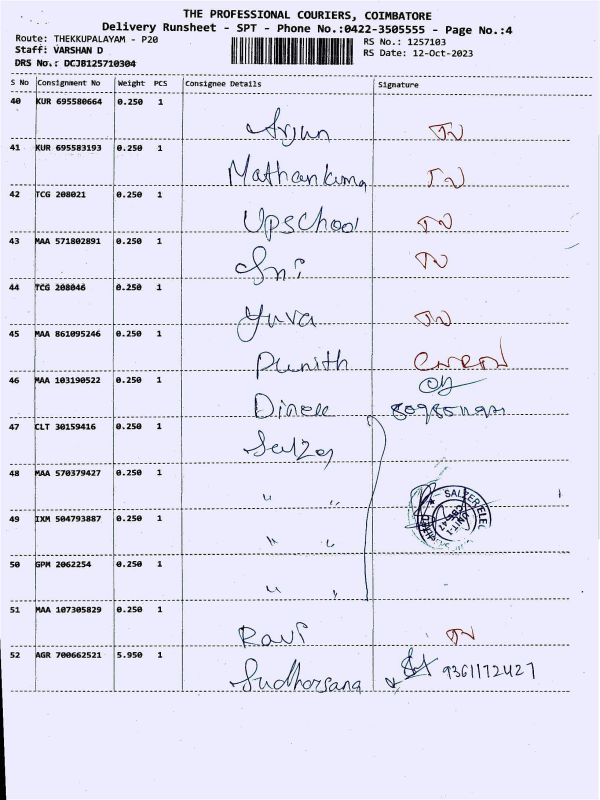 THE PROFESSIONAL COURIERS, COIMBATORE
Delivery Runsheet - SPT - Phone No.:0422-3505555 - Page No.:4
Route: THEKKUPALAYAM - P20
Staff: VARSHAN D
DRS No.: DCJB125710304
RS No.: 1257103
RS Date: 12-Oct-2023
S No Consignment No Weight PCS Consignee Details Signature
40 KUR 695580664 0.250 1
Arjun
41 KUR 695583193 0.250 1
Mathankumar
42 TCG 208021 0.250 1
Upschool
43 MAA 571802891 0.250 1
Sri
44 TCG 208046 0.250 1
Yuva
45 MAA 861095246 0.250 1
Punith
46 MAA 103190522 0.250 1
47 CLT 30159416 0.250 1
48 MAA 570379427 0.250 1
" "
49 IXM 504793887 0.250 1
" "
SALZER ELEC
UNIT-1
CBE-47
50 GPM 2062254 0.250 1
" "
51 MAA 107305829 0.250 1
Ravi
52 AGR 700662521 5.950 1
Sudhorsana 9361172427